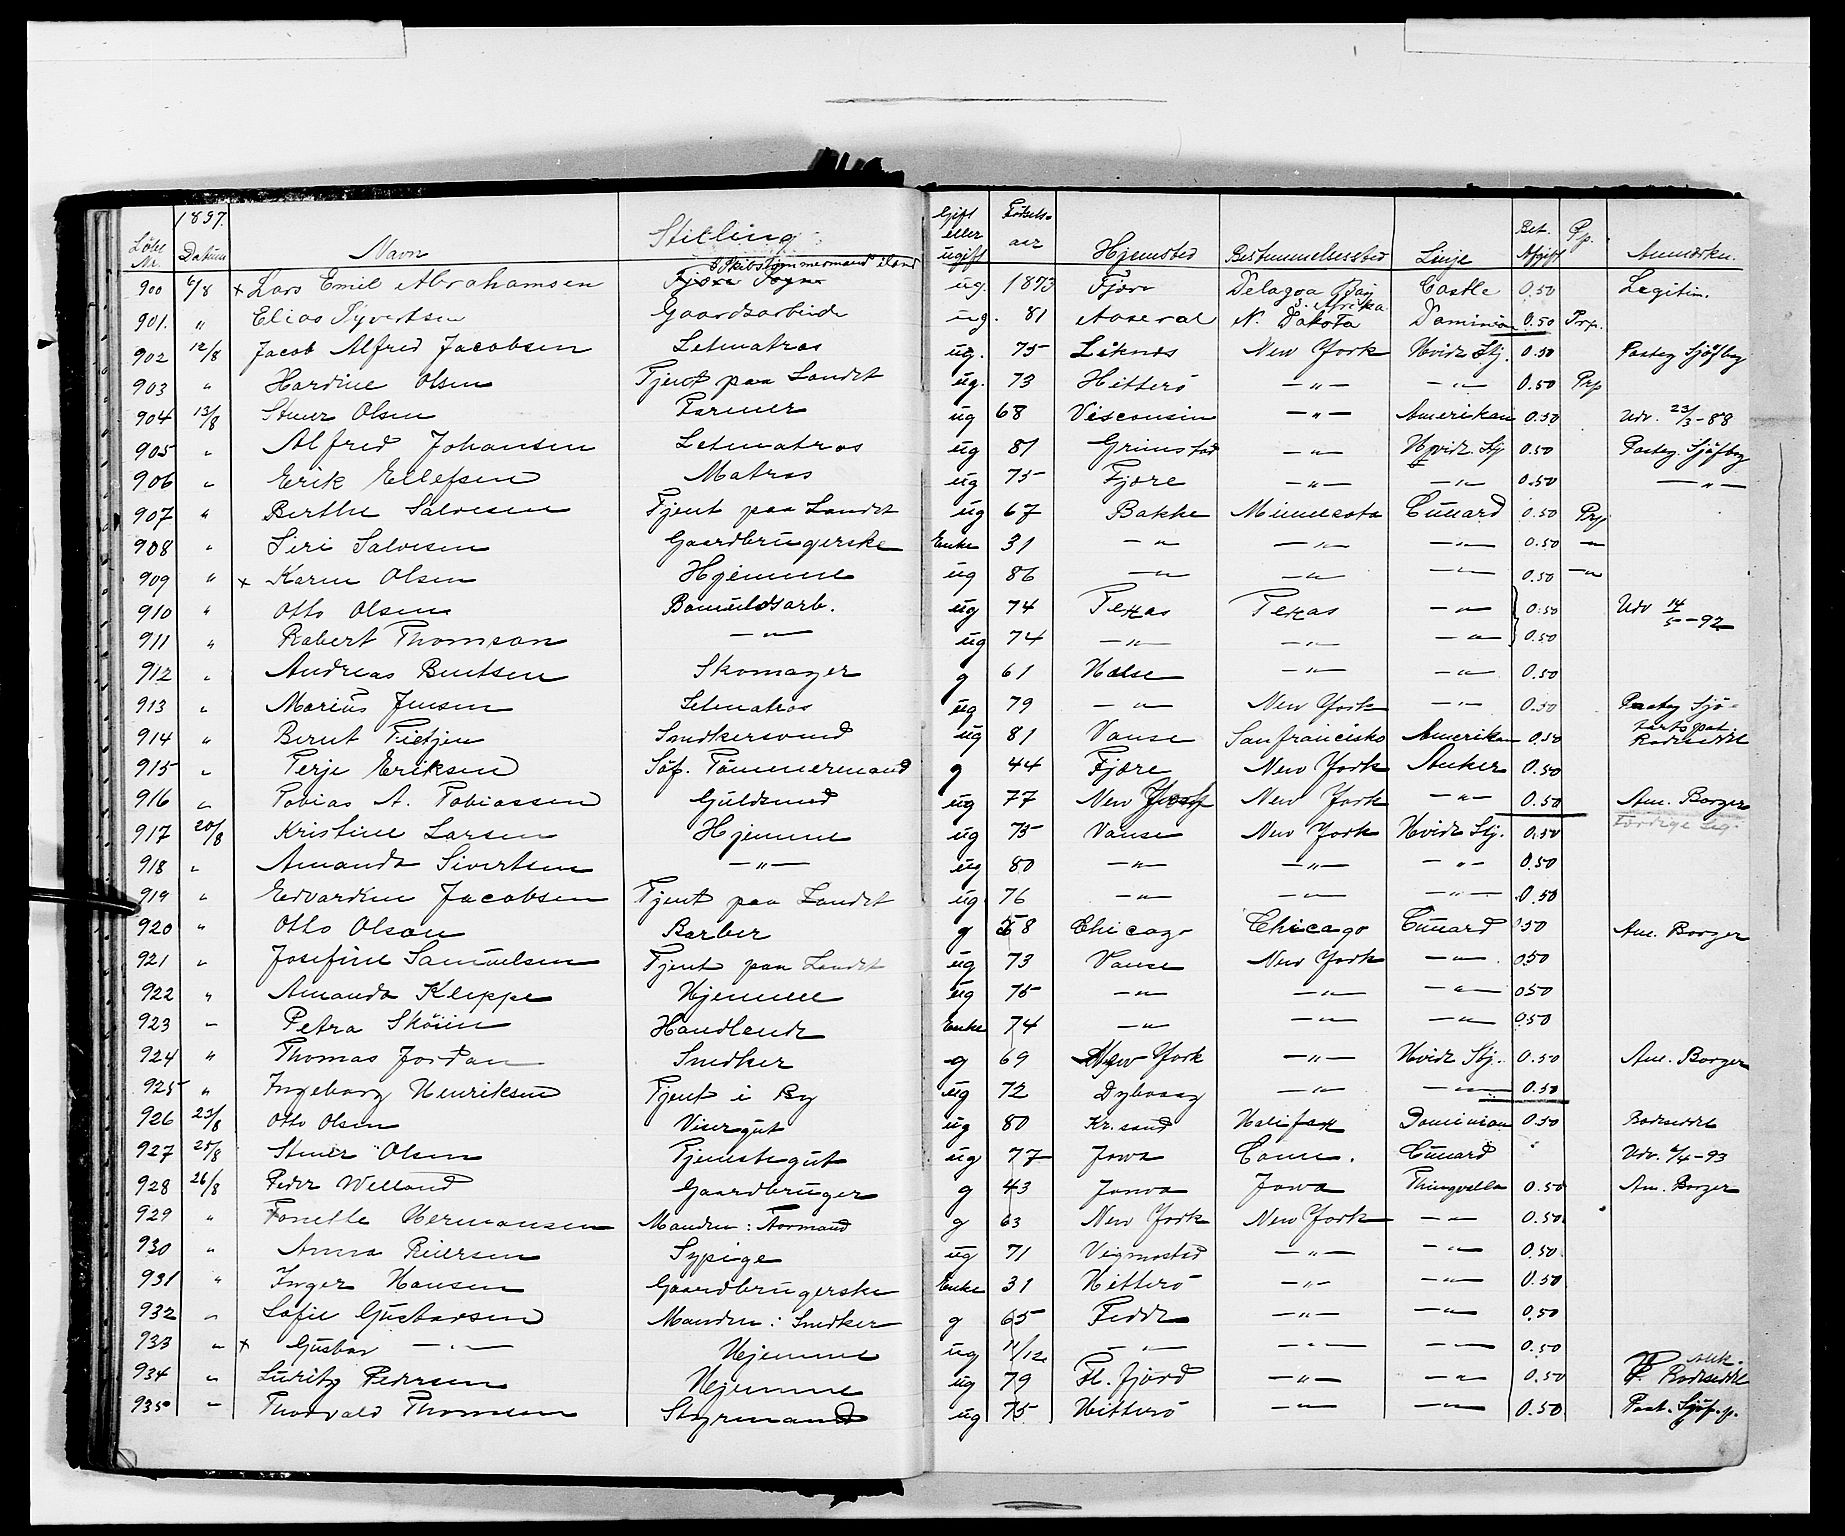 1897.
Løbe Nr. Datum Navn Stilling Gift eller ugift Fødsels-aar Hjemsted Bestemmelsessted Linje Bet. Afgift Pp. Anmærkn.
900 6/8 x Lars Emil Abrahamsen Skibstømmermand iland ug. 1873 Fjære Delagoa Bay S. Afrika Castle 0.50 Legitim.
901. " Elias Syvertsen Gaardsarbeide ug. 81 Aaseral N. Dakota Dominion 0.50 Prp.
902 12/8 Jacob Alfred Jacobsen Letmatros ug. 75 Liknes New York Hvide Stj. 0.50
903 " Hardine Olsen Tjent paa Landet ug. 73 Hitterö —"— —"— 0.50 Prp
904 13/8 Stener Olsen Farmer ug 68 Visconsin —"— Amerikan 0.50 Udv. 23/3-88
905 " Alfred Johansen Letmatros ug 81 Grimstad —"— Hvide Stj 0.50
906 " Erik Ellefsen Matros ug 75 Fjære —"— —"— 0.50 —"—
907 " Berthe Salvesen Tjent paa Landet ug 67 Bakke Minnesota Cunard 0.50 Prp
908 " Siri Salvesen Gaardbrugerske Enke 31 —"— —"— —"— 0.50 —"—
909 " x Karen Olsen Hjemme ug 86 —"— —"— —"— 0.50 —"—
910 " Otto Olsen Bomuldsarb. ug 74 Texas Texas —"— 0.50 Udv 14/5-92
911 " Robert Thomson —"— ug 74 —"— —"— —"— 0.50
912 " Andreas Bentsen Skomager g 61 Halse —"— —"— 0.50
913 " Marius Jensen Letmatros ug 79 —"— New York —"— 0.50
914 " Bernt Tietjen Snedkersvend ug 81 Vanse Sanfrancisko Amerikan 0.50 Rodeseddel
915 " Terje Eriksen Söf. Tømmermand g 44 Fjære New York Anker 0.50
916 " Tobias A. Tobiassen Guldsmed ug 77 New York New York —"— 0.50 Am. Borger
917 20/8 Kristine Larsen Hjemme ug 75 Vanse New York Hvide Stj. 0.50
918 " Amanda Sivertsen —"— ug 80 —"— —"— —"— 0.50
919 " Edvardine Jacobsen Tjent paa Landet ug 76 —"— —"— —"— 0.50
920 " Otto Olson Barber g 58 Chicago Chicago Cunard 0.50 Am. Borger
921 " Josefine Samuelsen Tjent paa Landet ug 73 Vanse New York —"— 0.50
922 " Amanda Kleppe Hjemme ug 75 —"— —"— —"— 0.50
923 " Petra Sköiin Handlende Enke 74 —"— —"— —"— 0.50
924 " Thomas Jordan Snedker g 69 New York —"— Hvide Stj. 0.50 Am. Borger
925 " Ingeborg Henriksen Tjent i By ug 72 Dybvaag —"— —"— 0.50
926 23/8 Otto Olsen Visergut ug 80 Kr.sand Halifax Dominion 0.50 Rodeseddel
927 25/8 Stener Olsen Tjenstegut ug 77 Jowa Conn. Cunard " Udv. 6/4-93
928 26/8 Peder Welland Gaardbruger g 43 Jowa Jowa Thingvalla 0.50 Am. Borger
929 " Tonette Hermansen Manden: Formand g 63 New York New York —"— 0.50
930 " Anna Reiersen Sypige ug 71 Vigmostad —"— —"— 0.50
931 " Inger Hansen Gaardbrugerske Enke 31 Hitterö —"— —"— 0.50
932 " Sofie Gustavsen Manden: Snedker g 65 Fede —"— —"— 0.50
933 " x Gustav —"— Hjemme ug 11/12 —"— —"— —"— 0.50
934 " Lurits Pedersen Hjemme ug 79 Fl. fjord —"— —"— 0.50 Rodeseddel
935 " Thorvald Thomsen Styrmand ug 75 Hitterö —"— —"— 0.50